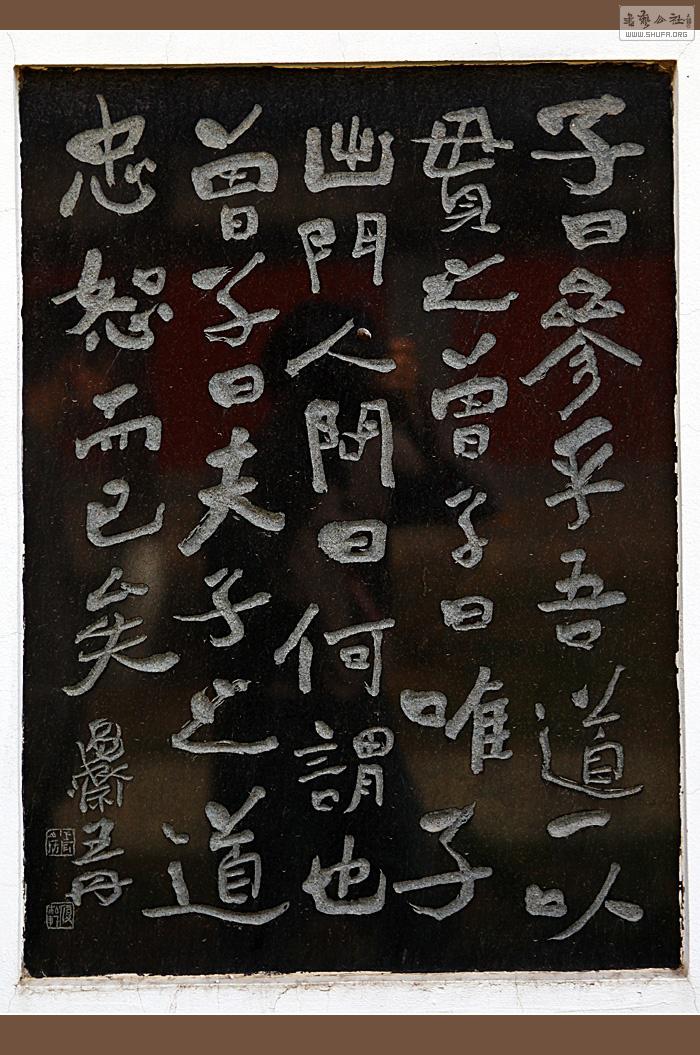 子曰參乎吾道一以
貫之曾子曰唯子
出門人問曰何謂也
曾子曰夫子之道
忠恕而已矣
齋王丹
書藝公社
WWW.SHUFA.ORG